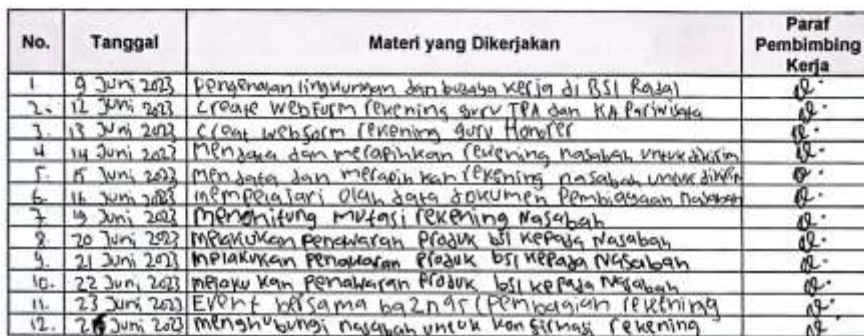 No. Tanggal Materi yang Dikerjakan Paraf Pembimbing Kerja
1. 9 Juni 2023 Pengenalan lingkungan dan budaya kerja di BSI
2. 12 Juni 2023 Create Webform rekening guru TPA dan KA Pariwisata
3. 13 Juni 2023 Creat webform rekening guru Honorer
4 14 Juni 2023 Mendata dan merapihkan rekening nasabah untuk dikirim
5. 15 Juni 2023 Mendata dan merapihkan rekening nasabah untuk dikirim
6. 16 Juni 2023 mempelajari Olah data dokumen Pembiayaan Nasabah
7 19 Juni 2023 Menghitung mutasi rekening Nasabah
8. 20 Juni 2023 Melakukan Penawaran Produk bsi kepada Nasabah
9. 21 Juni 2023 Melakukan Penawaran Produk bsi kepada Nasabah
10. 22 Juni 2023 Melaku kan Penawaran Produk bsi kepada Nasabah
11. 23 Juni 2023 Event bersama (Pembagian rekening
12. Juni 2023 menghubungi nasabah untuk konfirmasi rekening